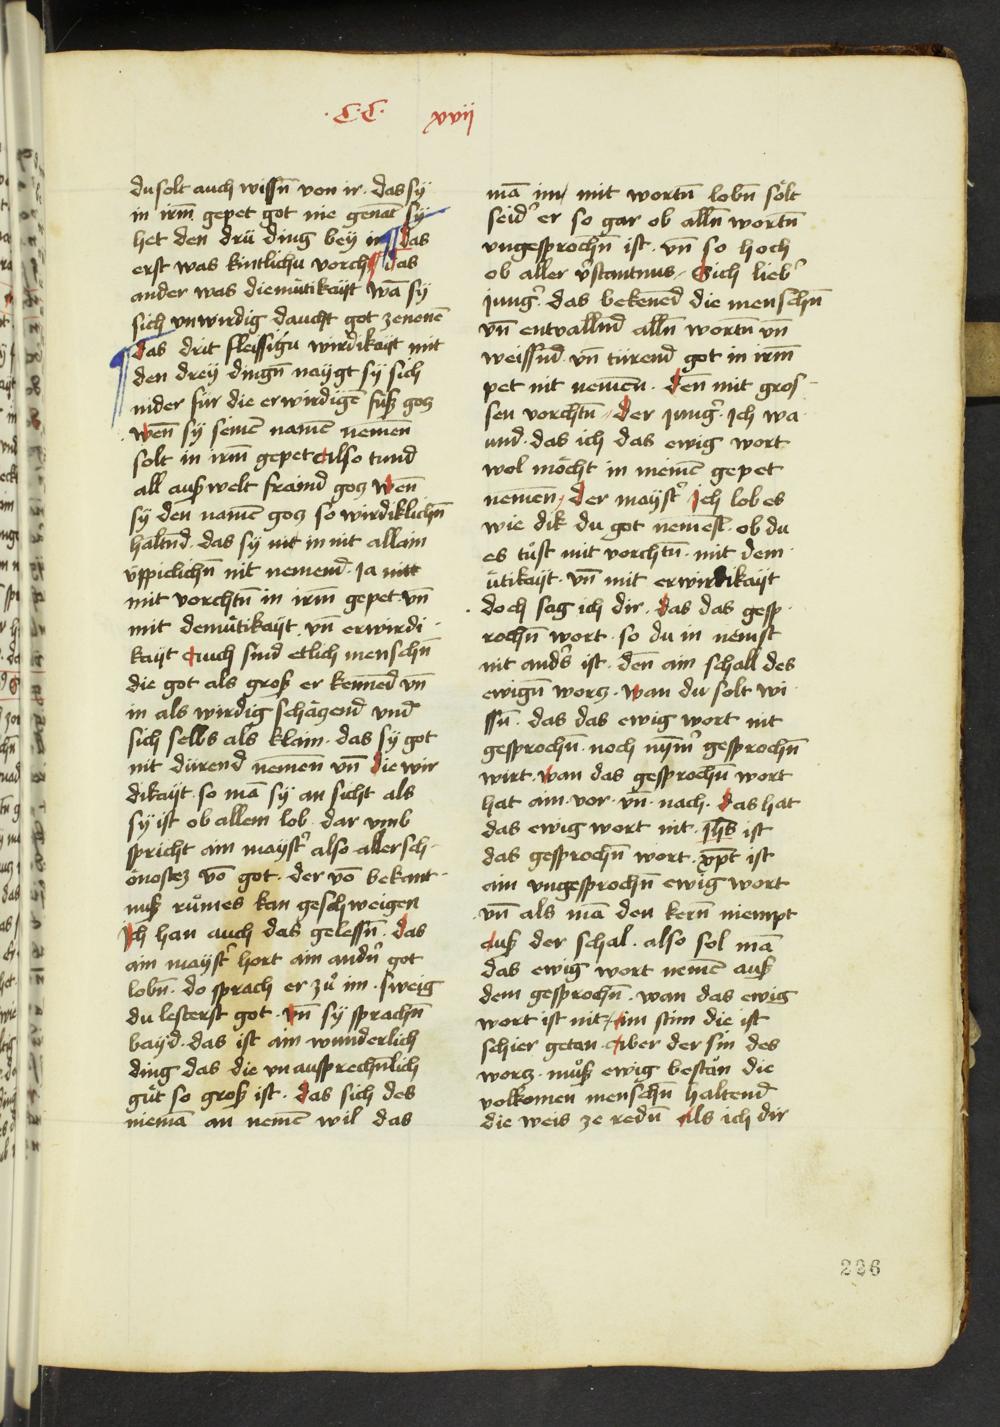 ·C·C· xvij
du solt auch wissn̄ von ir· das sÿ
in irm̄ gepet got nie genāt sÿ
het den drü ding beÿ im ¶ das
erst was kintlichu vorcht das
ander was diemütikaÿt Wā sÿ
sich vnwirdig daucht got zenenē
¶ das drit fleissigu wirdikaÿt mit
den dreÿ dingn̄ naÿgt sÿ sich
nider für die erwirdigē fuß gotz
wen̄ sÿ semē namē nemen̄
solt in irm̄ gepet Also tund
all auß welt fraind gotz Wen̄
sÿ den namē gotz so wirdiklichn̄
haltnd· das sÿ nit in nit allain
üppiclichn̄ nit nemend· Ja nitt
mit vorchtn̄ in irm̄ gepet· vn̄
mit demütikaÿt· vn̄ erwirdi·
kaÿt Auch sind etlich menschn̄
die got als groß er kenned vn̄
in als wirdig schätzend vnd
sich selbs als klain· das sÿ got
nit dürend nemen vn̄ die wir
dikaÿt· so mā sÿ an sicht als
sÿ ist ob allem lob· dar vmb
spricht ain maÿst᾿ also aller sch·
önostez vō got· der vō bekant·
nuß rümes kan geschweigen
Ich han auch das gelessn̄· das
ain maÿst᾿ hort ain andn᾿ got
lobn̄· do sprach er zů im· sweig
du lesterst got· Vn̄ sÿ sprachn̄
baÿd· das ist ain wunderlich
ding das die vnaussprechn̄lich
güt so groß ist· das sich des
niemā an nemē wil das
mā im/ mit wortn̄ lobn̄ sölt
seid᾿ er so gar ob alln̄ wortn̄
vngesprochn̄ ist· vn̄ so hoch
ob aller v᾿stantnus/ Sich lieb᾿
jung᾿· das bekened die menschn̄
vn̄ entvallnd alln̄ wortn̄ vn̄
weissnd· vn̄ türend got in irm̄
pet nit nemen· den̄ mit gros·
sen vorchtn̄/ der jung᾿· Ich wa·
und· das ich das ewig wort
wol möcht in meinē gepet
nemen/ der maÿst᾿ Ich lob es
wie dik du got nemest· ob du
es tůst mit vorchtn̄· mit dem·
ütikaÿt· vn̄ mit erwirdikaÿt
doch sag ich dir· das das gesp·
rochn̄ wort· so du in nemst
nit and᾿s ist· den̄ ain schall des
ewign̄ wortz· wan du solt wi·
ssn̄· das das ewig wort nit
gesprochn̄· noch nÿm᾿ gesprochn̄
wirt· wan das gesprochn̄ wort
hat ain· vor· vn̄· nach· das hat
das ewig wort nit· ihs ist
das gesprochn̄ wort· xpt ist
ain vngesprochn̄ ewig wort
vn̄ als mā den kern̄ niempt
auß der schal· also sol mā
das ewig wort nemē auß
dem gesprochn̄· wan das ewig
wort ist nit/ ain stim die ist
schier getan· Aber der sin des
wortz· můß ewig bestān die
volkomen menschn̄ haltend
die weis ze redn̄ Als ich dir
226